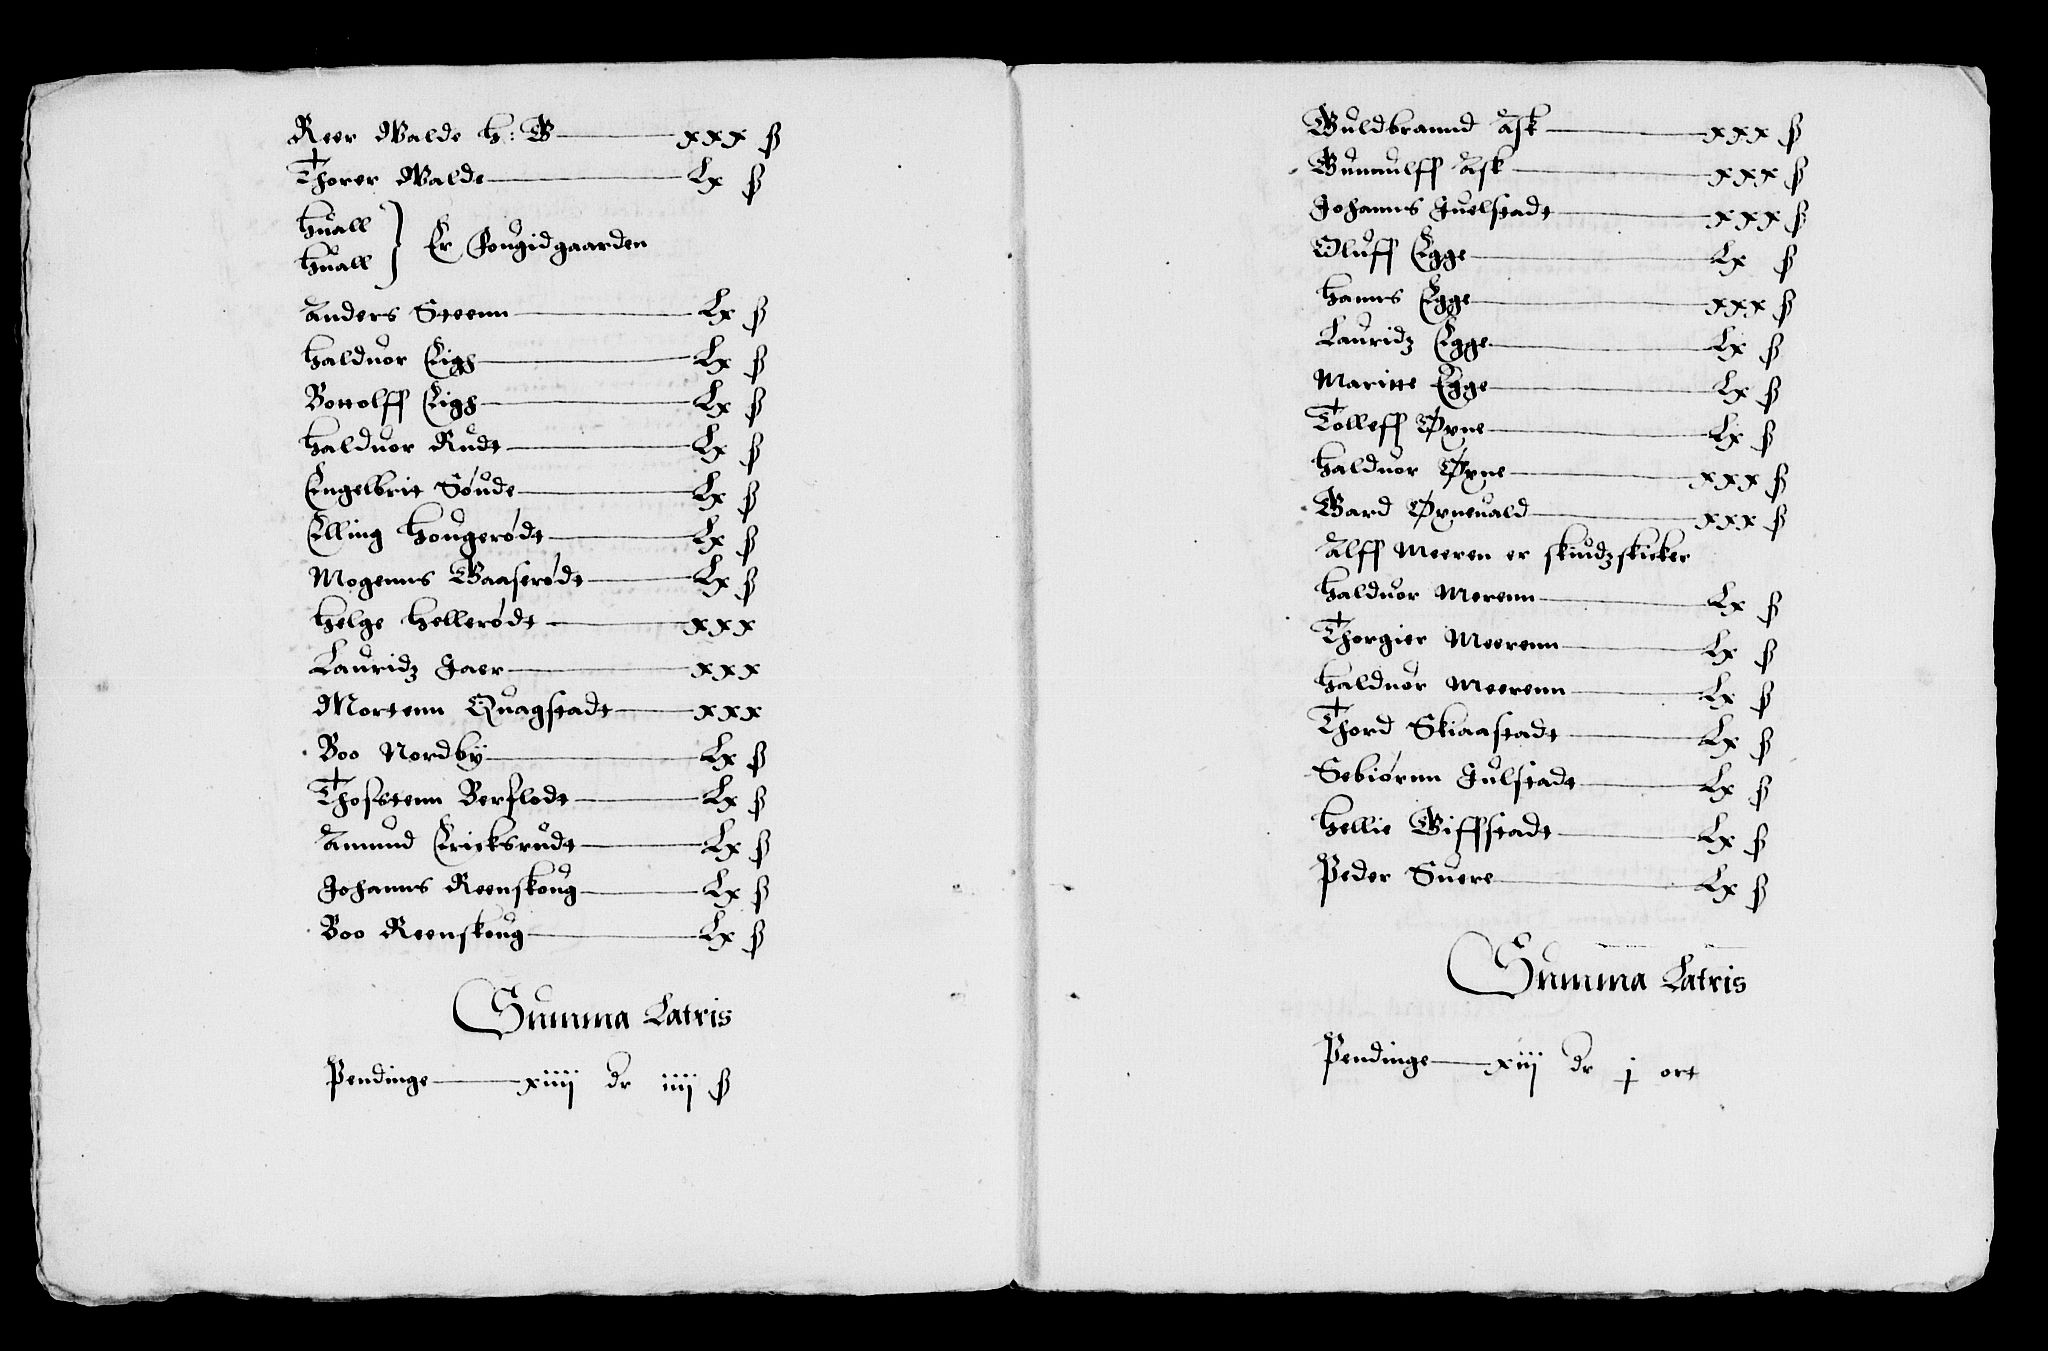 Reer Walde H: G xxx ß
Thorer Walde Lx ß
Huall
Huall } Er Fougidgaarden
Anders Steenn Lx ß
Halduor Eigh Lx ß
Bottolff Eigh Lx ß
Halduor Rudt Lx ß
Engelbrit Sóude Lx ß
Elling Hougerødt Lx ß
Mogenns Gaaserødt Lx ß
Helge Hellerødt xxx
Lauridz Jaer xxx
Mortenn Quagstadt xxx
Boo Nordbÿ Lx ß
Thosstenn Berflodt Lx ß
Amund Ericksrudt Lx ß
Johanns Reenskoug Lx ß
Boo Reenskoug Lx ß
Summa Latris
Pendinge xiiij dr iiij ß
Guldbrannd Ask xxx ß
Gunnulff Ask xxx ß
Johanns Juelstadt xxx ß
Oluff Egge Lx ß
Hanns Egge xxx ß
Lauridz Egge Lx ß
Maritte Egge Lx ß
Tolleff Øxne Lx ß
Halduor Øxne xxx ß
Gard Øxneuald xxx ß
Alff Meeren er skiudzskicker
Halduor Merenn Lx ß
Thorgier Meerenn Lx ß
Halduor Meerenn Lx ß
Thord Skiaastadt Lx ß
Sebiórnn Julstadt Lx ß
Hellie Giffstadt Lx ß
Peder Suere Lx ß
Summa Latris
Pendinge xiij dr j ort